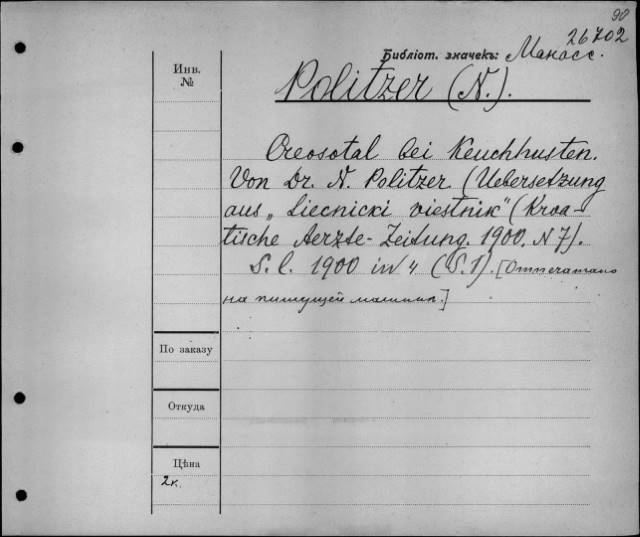 90
26702
Библіот. значекъ: Манасс.
Инв.
№
Politzer (N.).
Creosotal bei Keuchhusten.
Von Dr. N. Politzer (Uebersetzung
aus „Liecnicki viestnik“ (Kroa-
tische Aerzte-Zeitung. 1900. N 7).
S. l. 1900 in 4 (S. 1). [Отпечатано
на пишущей машин.]
По заказу
Откуда
Цѣна
2к.